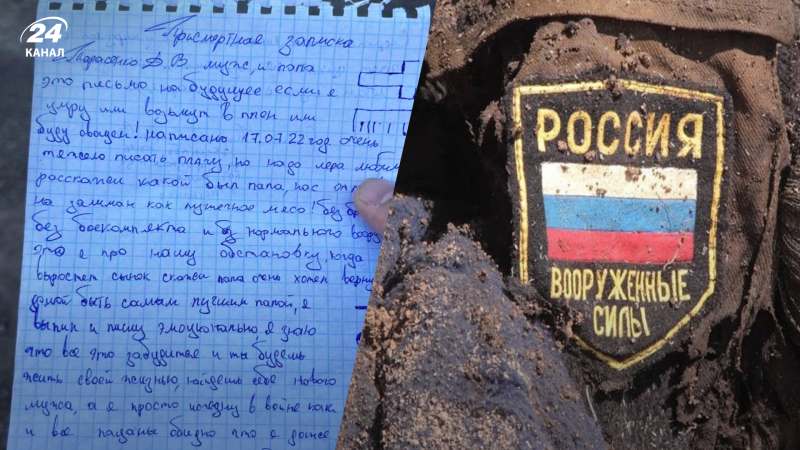 24
КАНАЛ
Присмертная записка
Тарасенко Д.В муж, и папа
это письмо на будущее если я
умру или возьмут в плен или
буду овощем! Написано 17.07.22 год. Очень
тяжело писать плачу, но надо лера любим
расскажем какой был папа, нас
на заклан как пушечное мясо! без бр
без боекомплекта и без нормального воору
это я про нашу обстановку, когда
выростет сынок скажи папа очень хотел верну
домой быть самым лучшим папой, я
выпил и пишу эмоционально я знаю
что все это забудиться и ты будешь
жить своей жизнью, найдешь себе нового
мужа, а я просто исчезну в войне как
и все пацаны обидно что я даже
РОССИЯ
ВООРУЖЕННЫЕ
СИЛЫ